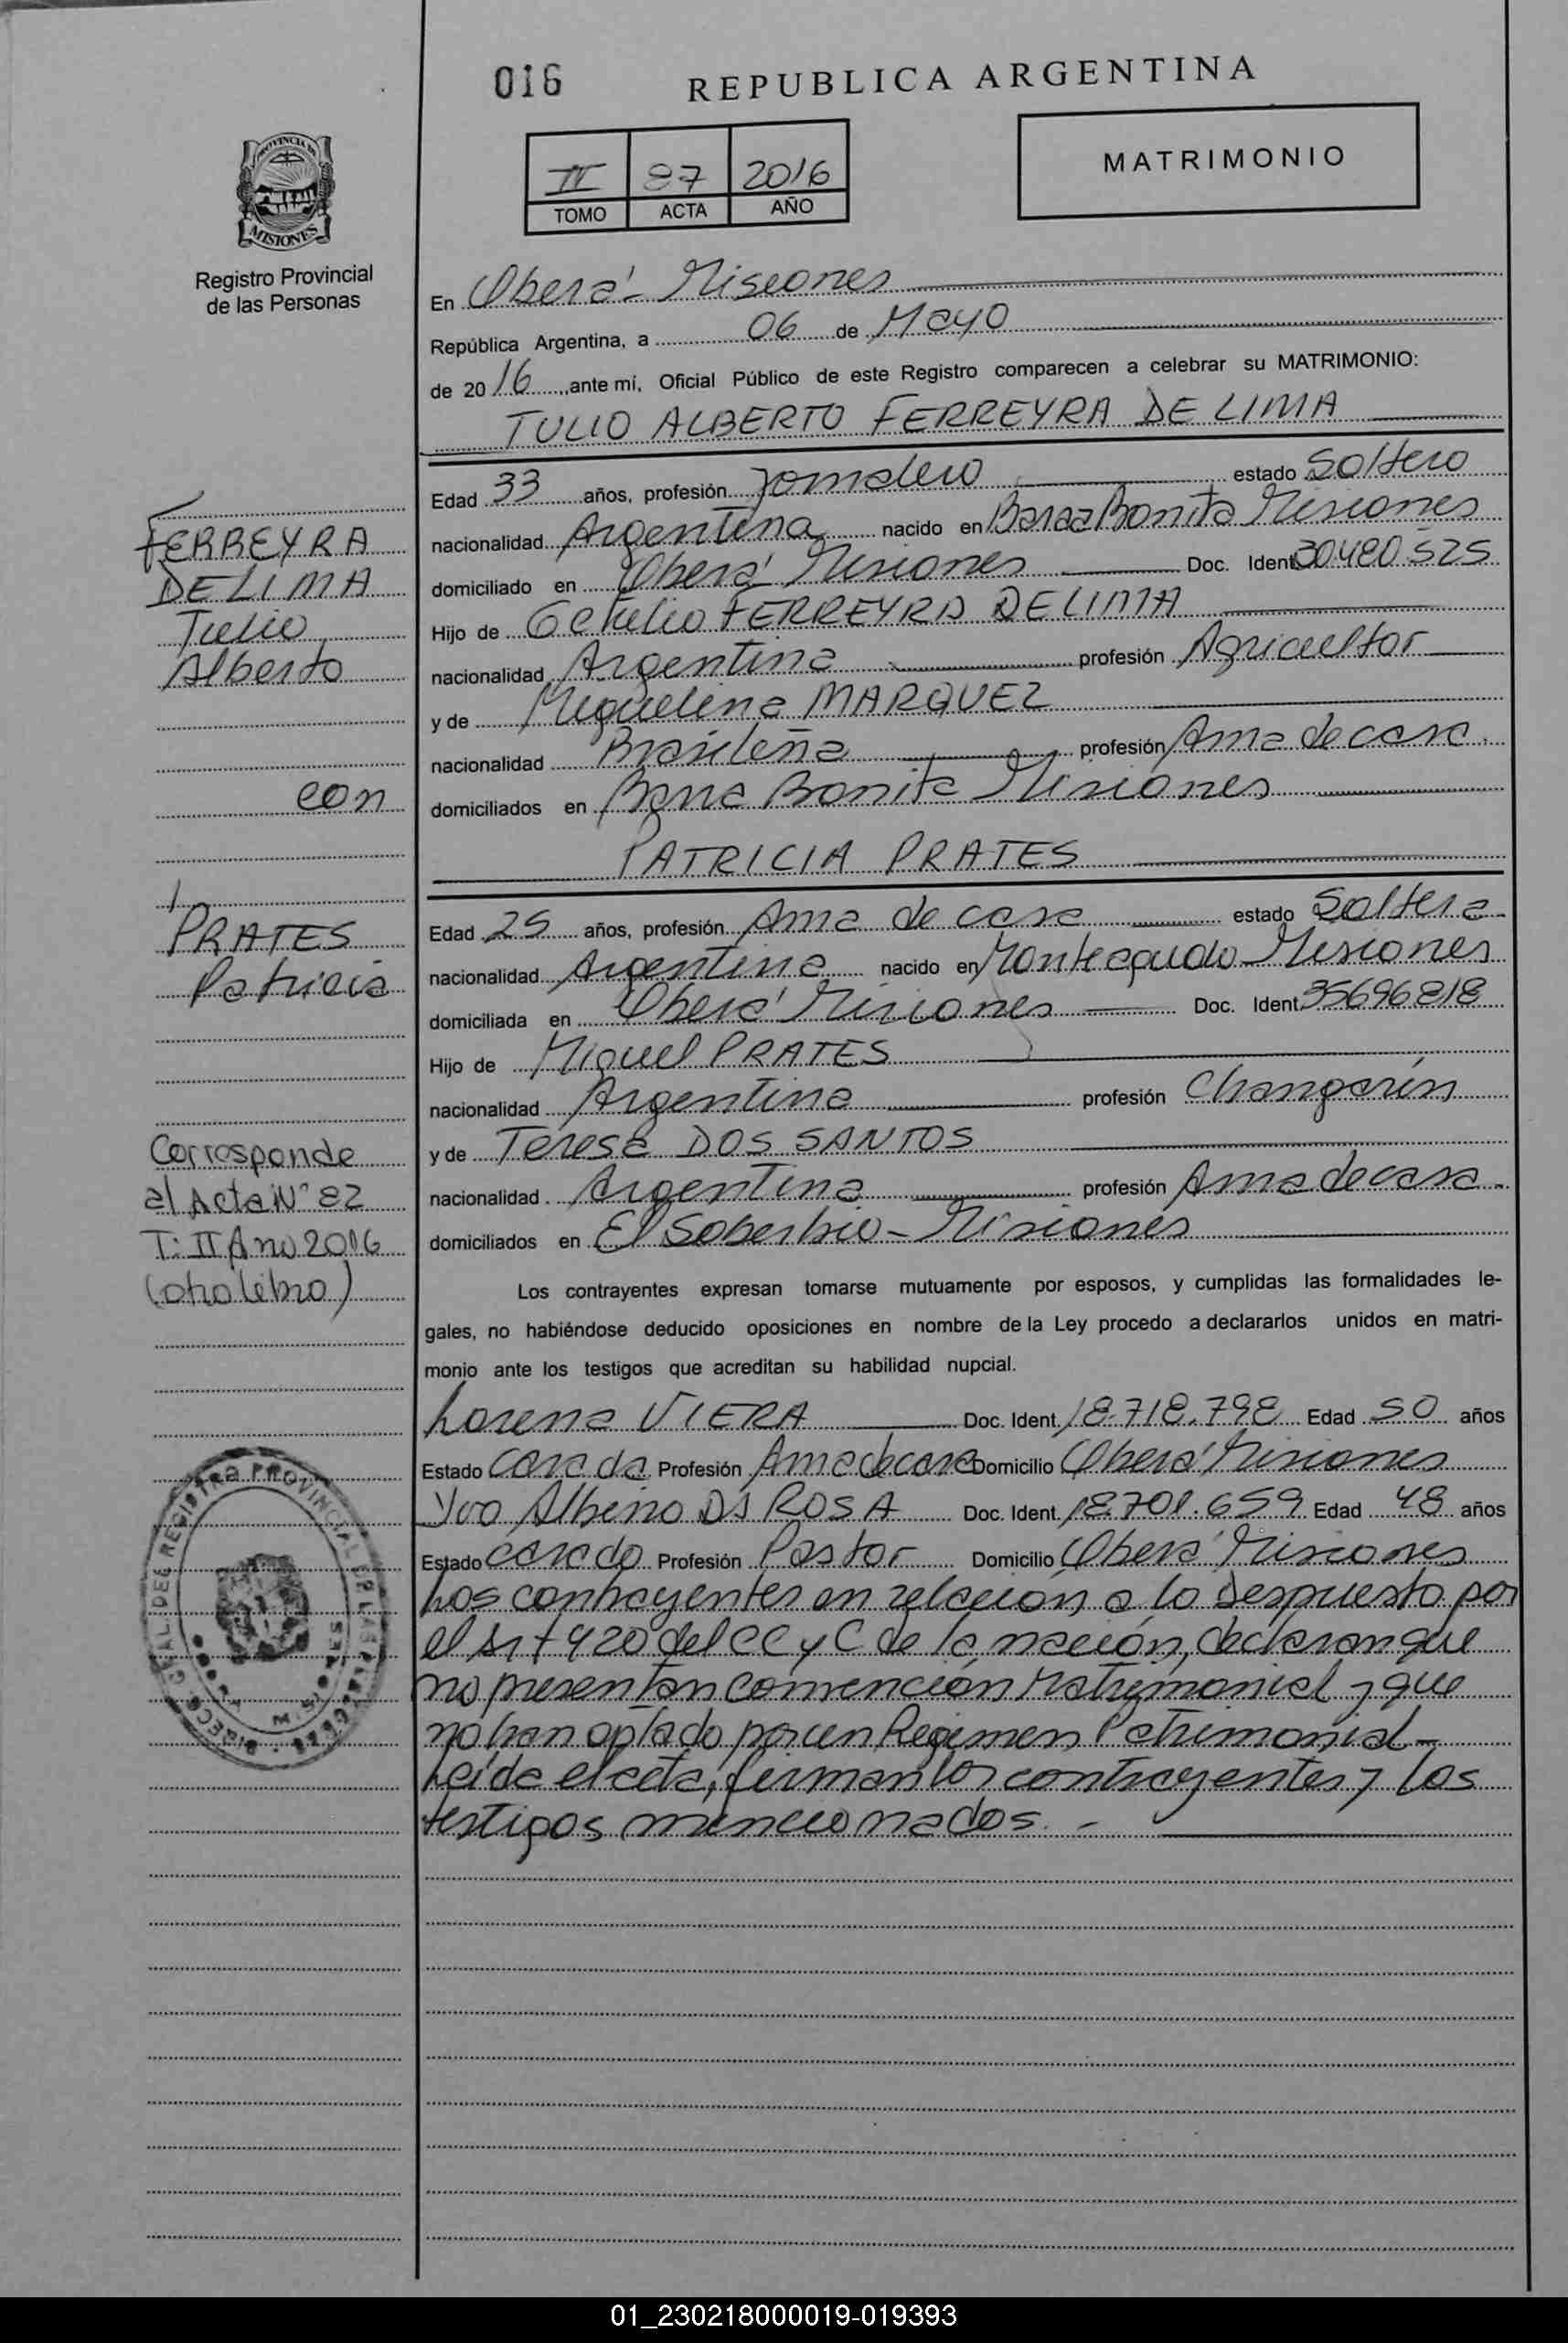 016
REPUBLICA ARGENTINA
PROVINCIA DE
MISIONES
Registro Provincial
de las Personas
II 87 2016
TOMO ACTA AÑO
MATRIMONIO
En Oberá - Misiones
República Argentina, a 06 de Mayo
de 2016, ante mí, Oficial Público de este Registro comparecen a celebrar su MATRIMONIO:
TULIO ALBERTO FERREYRA DE LIMA
Edad 33 años, profesión Jornalero estado Soltero
nacionalidad Argentina nacido en Barra Bonita Misiones
domiciliado en Oberá Misiones Doc. Ident 30480.525
Hijo de Getulio FERREYRA DE LIMA
nacionalidad Argentina profesión Agricultor
y de Miguelina MARQUEZ
nacionalidad Brasileña profesión Ama de casa.
domiciliados en Barra Bonita Misiones
PATRICIA PRATES
Edad 25 años, profesión Ama de casa estado Soltera
nacionalidad Argentina nacido en Monteagudo Misiones
domiciliada en Oberá Misiones Doc. Ident. 35696818
Hijo de Miguel PRATES
nacionalidad Argentina profesión Changarín
y de Teresa DOS SANTOS
nacionalidad Argentina profesión Ama de casa.
domiciliados en El Soberbio - Misiones
Los contrayentes expresan tomarse mutuamente por esposos, y cumplidas las formalidades le-
gales, no habiéndose deducido oposiciones en nombre de la Ley procedo a declararlos unidos en matri-
monio ante los testigos que acreditan su habilidad nupcial.
Lorena VIERA Doc. Ident. 18.718.798 Edad 50 años
Estado Casada Profesión Ama de casa Domicilio Oberá Misiones
Yvo Albino DA ROSA Doc. Ident. 18.701.659 Edad 48 años
Estado Casado Profesión Pastor Domicilio Oberá Misiones
Los contrayentes en relación a lo despuesto por
el Art 420 del CC y C de la nación, declaran que
no presentan Convención Matrimonial y que
no han optado por un Regimen Patrimonial -
Leída el acta, firman los contrayentes y los
testigos mencionados. -
FERREYRA
DE LIMA
Tulio
Alberto
con
PRATES
Patricia
Corresponde
al Acta N° 82
T: II Año 2016
(otro libro)
01_230218000019-019393